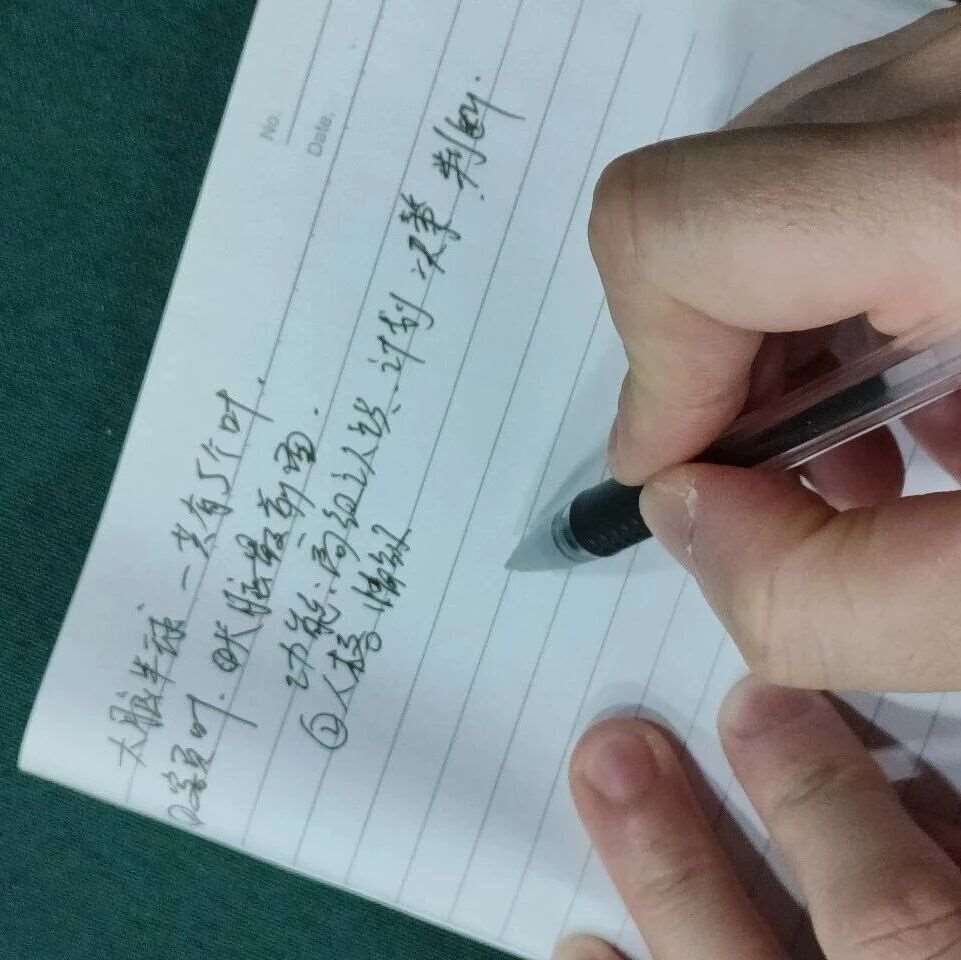 No.
Date.
大脑半球 一共有5个叶.
①额叶. 大脑最前面.
功能: 高级认知、计划 决策 判断.
②人格 情绪